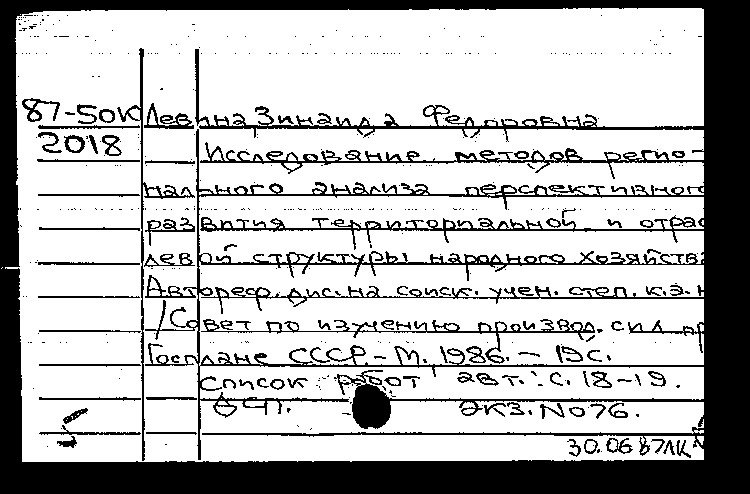 87-50К Левина, Зинаида Федоровна
2018 Исследование методов регио-
нального анализа перспективного
развития территориальной и отрас
левой структуры народного хозяйства
Автореф. дис. на соиск. учен. степ. к.э.н
/Совет по изучению производ. сил пр
Госплане СССР. - М., 1986. - 19с.
Список работ авт.: с. 18-19.
ДСП. Экз. No 76.
30.06 87ЛК